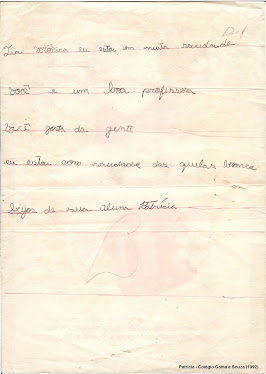 12-1
Tia Mônica eu estou em muita saudade
você e um boa professora
você gosta da gente
eu estou com saudade das quelas branca
beijos de sua aluna Patrícia
Patricia - Colégio Gama e Souza (1992)